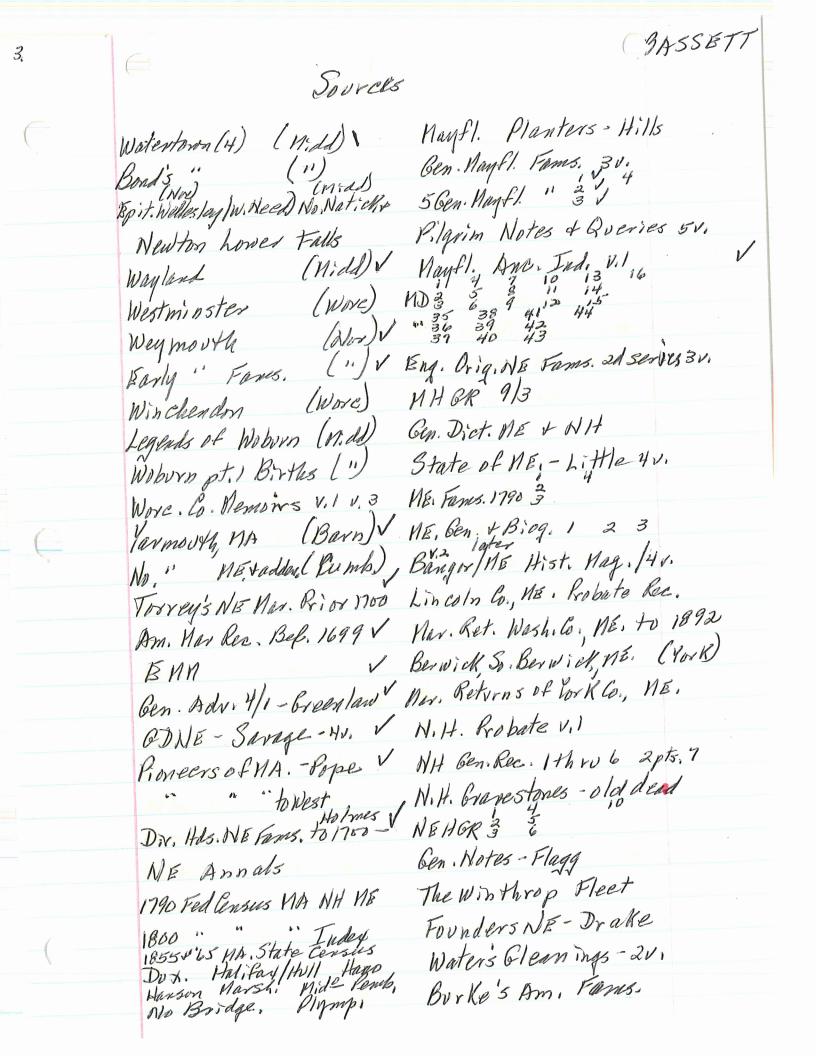 3.
BASSETT
Sources
Watertown (4) (Midd)
Bond's " (")
(Nor) (Midd)
Epit. Wellesley/W. Need/No. Natick &
Newton Lower Falls
Wayland (Midd) ✓
Westminster (Worc)
Weymouth (Nor) ✓
Early " Fams. (") ✓
Winchendon (Worc)
Legends of Woburn (Midd)
Woburn pt. 1 Births (")
Worc. Co. Memoirs v.1 v.3
Yarmouth, MA (Barn) ✓
No. " ME, + adden. (Cumb.)
Torrey's NE Mar. Prior 1700 ✓
Am. Mar Rec. Bef. 1699 ✓
EMM ✓
Gen. Adv. 4/1 - Greenlaw ✓
GDNE - Savage - 4v. ✓
Pioneers of MA. - Pope ✓
" " " to West
Holmes
Div. Hds. NE Fams. to 1700 - ✓
NE Annals
1790 Fed Census MA NH ME
1800 " " " Index
1855 & '65 MA. State Census
Dux. Halifax/Hull Hano
Hanson Marsh. Midd Pemb.
No Bridge. Plymp.
Mayfl. Planters - Hills
Gen. Mayfl. Fams. 3v.
1 ✓ 4
5 Gen. Mayfl. " 2 ✓
3 ✓
Pilgrim Notes & Queries 5v.
Mayfl. Anc. Ind. v.1 ✓
1 4 7 10 13 16
MD 2 5 8 11 14
3 6 9 12 15
35 38 41 44
" 36 39 42
37 40 43
Eng. Orig. NE Fams. 2d series 3v.
MHGR 9/3
Gen. Dict. ME & NH
State of ME. - Little 4v.
1 4
ME. Fams. 1790 2
3
ME. Gen. & Biog. 1 2 3
v.2 later
Bangor/ME Hist. Mag./4v.
Lincoln Co., ME. Probate Rec.
Mar. Ret. Wash. Co., ME. to 1892
Berwick, So. Berwick, ME. (York)
Mar. Returns of York Co., ME.
N.H. Probate v.1
NH Gen. Rec. 1 thru 6 2 pts. 7
N.H. Gravestones - old dead
1 4 10
NEHGR 2 5
3 6
Gen. Notes - Flagg
The Winthrop Fleet
Founders NE - Drake
Water's Gleanings - 2v.
Burke's Am. Fams.